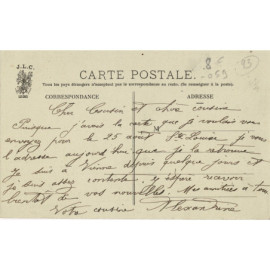 J.L.C.
CARTE POSTALE.
Tous les pays étrangers n'acceptent pas la correspondance au verso. (Se renseigner à la poste).
CORRESPONDANCE
ADRESSE
Cher Cousin et chère cousine
Puisque j'avais la carte que je voulais vous
envoyer pour le 25 août St Louis, je
l'adresse aujourd'hui que je la retrouve
Je suis à Vienne depuis quelques jours et
je suis assez contente, j'espère recevoir
bientôt de vos nouvelles. Mes amitiés à tous
Votre cousine Alexandrine